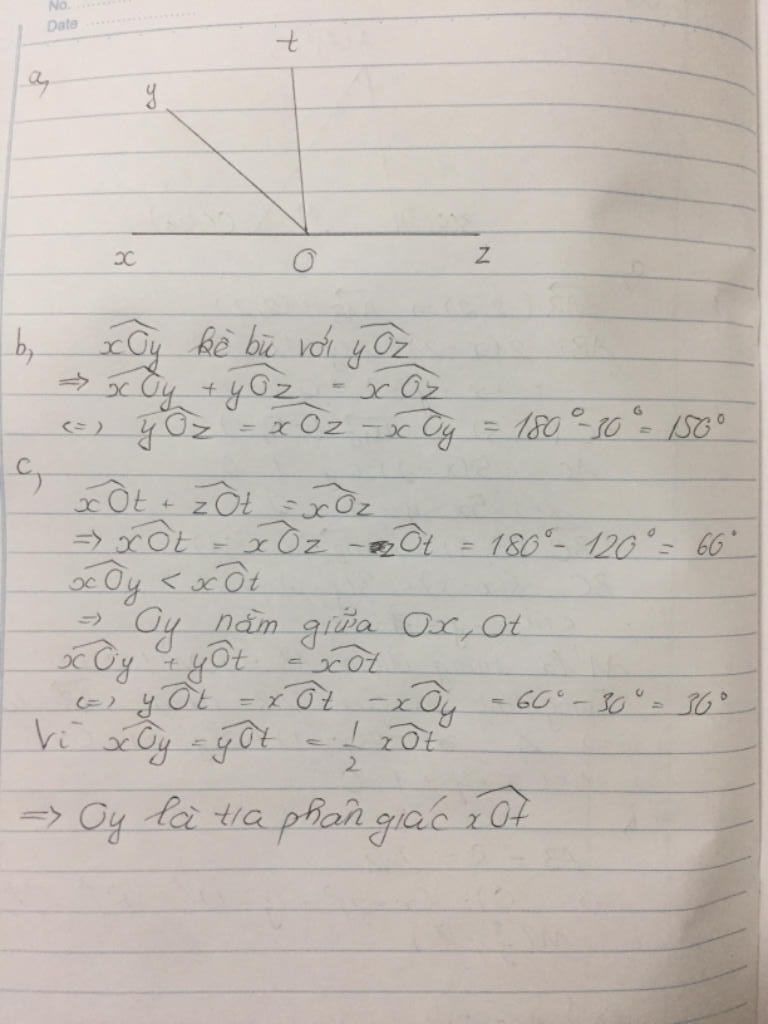 No.
Date
a,
t
y
x O z
b, xÔy kề bù với yÔz
=> xÔy + yÔz = xÔz
<=> yÔz = xÔz - xÔy = 180° - 30° = 150°
c,
xÔt + zÔt = xÔz
=> xÔt = xÔz - zÔt = 180° - 120° = 60°
xÔy < xÔt
=> Oy nằm giữa Ox, Ot
xÔy + yÔt = xÔt
<=> yÔt = xÔt - xÔy = 60° - 30° = 30°
Vì xÔy = yÔt = 1/2 xÔt
=> Oy là tia phân giác xÔt